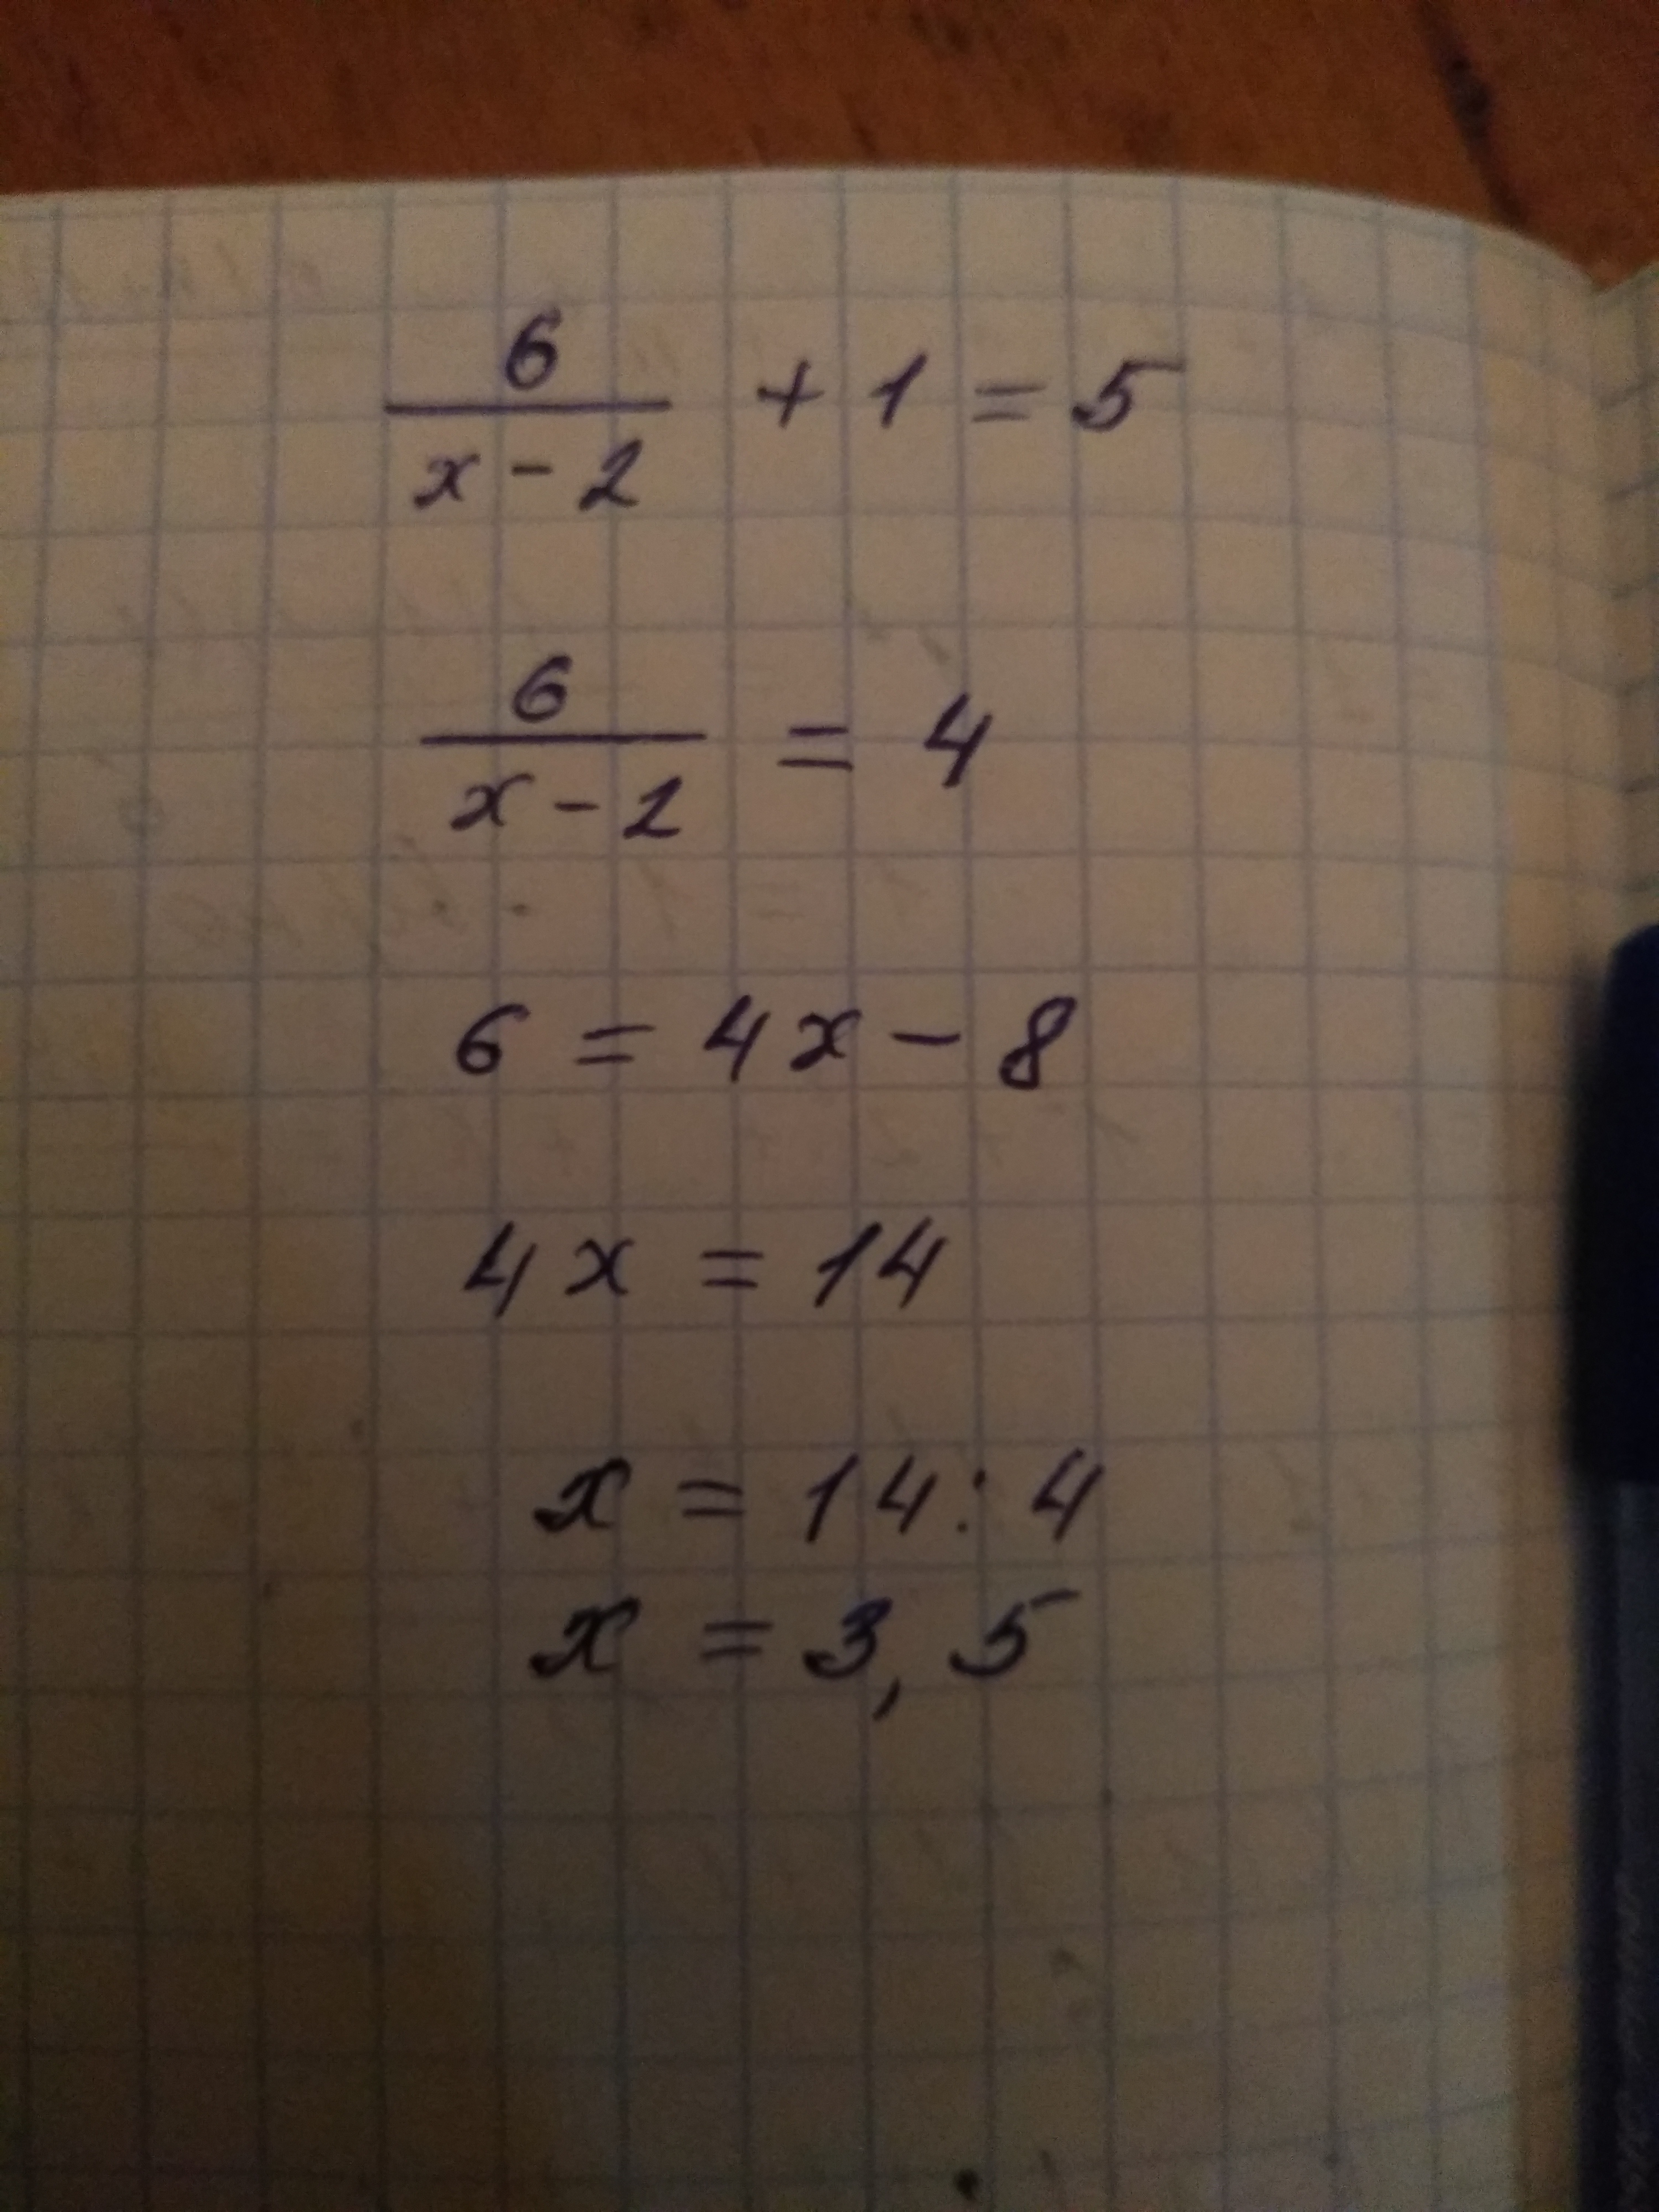 6/(x - 2) + 1 = 5
6/(x - 2) = 4
6 = 4x - 8
4x = 14
x = 14 : 4
x = 3,5